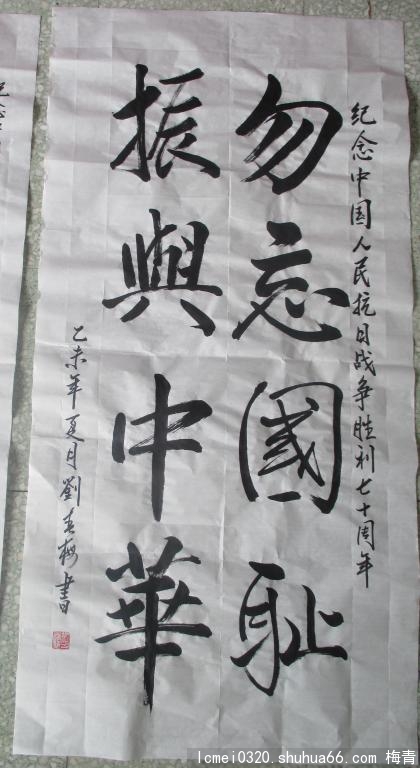 纪念中国人民抗日战争胜利七十周年
勿忘國耻
振興中華
乙未年夏月劉春梅書
lcmei0320.shuhua66.com 梅青